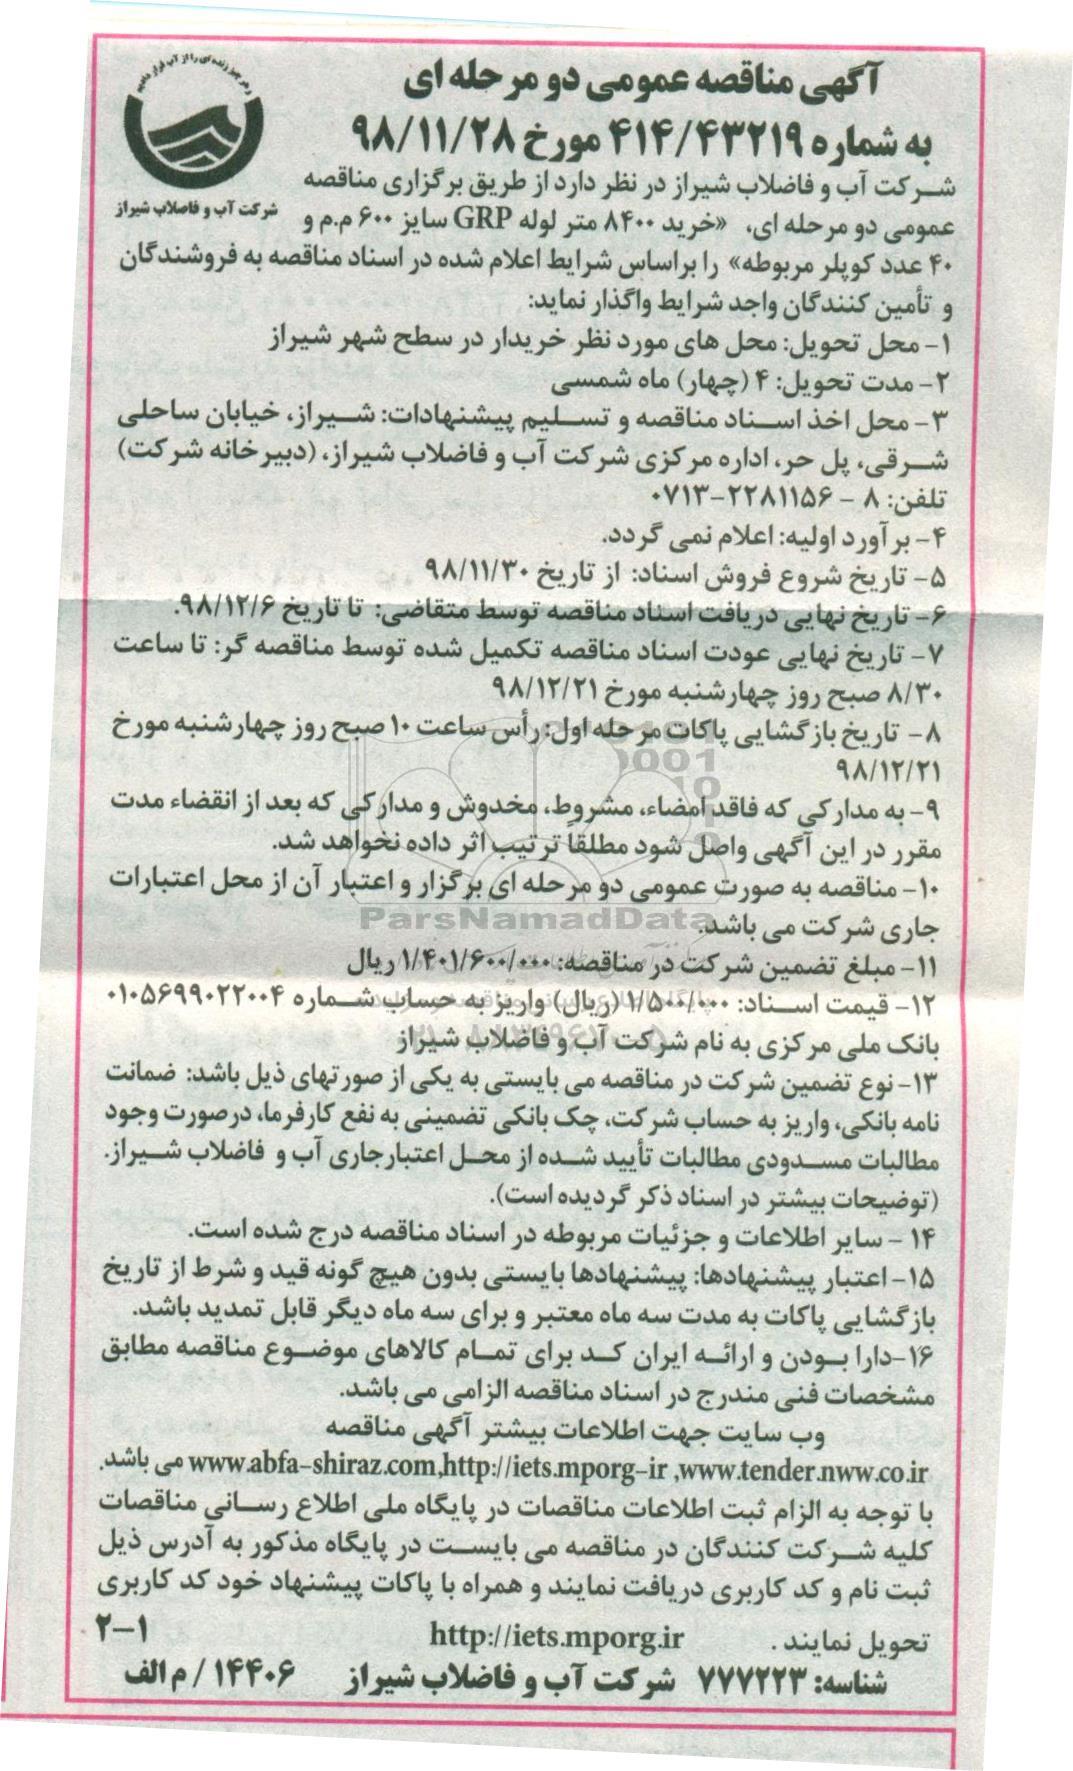 و هر چیز زنده ای را از آب قرار دادیم
شرکت آب و فاضلاب شیراز
آگهی مناقصه عمومی دو مرحله ای
به شماره ۴۱۴/۴۳۲۱۹ مورخ ۹۸/۱۱/۲۸
شرکت آب و فاضلاب شیراز در نظر دارد از طریق برگزاری مناقصه
عمومی دو مرحله ای، «خرید ۸۴۰۰ متر لوله GRP سایز ۶۰۰ م.م و
۴۰ عدد کوپلر مربوطه» را براساس شرایط اعلام شده در اسناد مناقصه به فروشندگان
و تأمین کنندگان واجد شرایط واگذار نماید:
۱- محل تحویل: محل های مورد نظر خریدار در سطح شهر شیراز
۲- مدت تحویل: ۴ (چهار) ماه شمسی
۳- محل اخذ اسناد مناقصه و تسلیم پیشنهادات: شیراز، خیابان ساحلی
شرقی، پل حر، اداره مرکزی شرکت آب و فاضلاب شیراز، (دبیرخانه شرکت)
تلفن: ۸ - ۲۲۸۱۱۵۶-۰۷۱۳
۴- برآورد اولیه: اعلام نمی گردد.
۵- تاریخ شروع فروش اسناد: از تاریخ ۹۸/۱۱/۳۰
۶- تاریخ نهایی دریافت اسناد مناقصه توسط متقاضی: تا تاریخ ۹۸/۱۲/۶.
۷- تاریخ نهایی عودت اسناد مناقصه تکمیل شده توسط مناقصه گر: تا ساعت
۸/۳۰ صبح روز چهارشنبه مورخ ۹۸/۱۲/۲۱
۸- تاریخ بازگشایی پاکات مرحله اول: رأس ساعت ۱۰ صبح روز چهارشنبه مورخ
۹۸/۱۲/۲۱
۹- به مدارکی که فاقد امضاء، مشروط، مخدوش و مدارکی که بعد از انقضاء مدت
مقرر در این آگهی واصل شود مطلقاً ترتیب اثر داده نخواهد شد.
۱۰- مناقصه به صورت عمومی دو مرحله ای برگزار و اعتبار آن از محل اعتبارات
جاری شرکت می باشد.
ParsNamadData
۱۱- مبلغ تضمین شرکت در مناقصه: ۱/۴۰۱/۶۰۰/۰۰۰ ریال
۱۲- قیمت اسناد: ۱/۵۰۰/۰۰۰ (ریال) واریز به حساب شماره ۰۱۰۵۶۹۹۰۲۲۰۰۴
بانک ملی مرکزی به نام شرکت آب و فاضلاب شیراز
۱۳- نوع تضمین شرکت در مناقصه می بایستی به یکی از صورتهای ذیل باشد: ضمانت
نامه بانکی، واریز به حساب شرکت، چک بانکی تضمینی به نفع کارفرما، درصورت وجود
مطالبات مسدودی مطالبات تأیید شده از محل اعتبارجاری آب و فاضلاب شیراز.
(توضیحات بیشتر در اسناد ذکر گردیده است).
۱۴ - سایر اطلاعات و جزئیات مربوطه در اسناد مناقصه درج شده است.
۱۵- اعتبار پیشنهادها: پیشنهادها بایستی بدون هیچ گونه قید و شرط از تاریخ
بازگشایی پاکات به مدت سه ماه معتبر و برای سه ماه دیگر قابل تمدید باشد.
۱۶-دارا بودن و ارائه ایران کد برای تمام کالاهای موضوع مناقصه مطابق
مشخصات فنی مندرج در اسناد مناقصه الزامی می باشد.
وب سایت جهت اطلاعات بیشتر آگهی مناقصه
www.abfa-shiraz.com,http://iets.mporg-ir ,www.tender.nww.co.ir می باشد.
با توجه به الزام ثبت اطلاعات مناقصات در پایگاه ملی اطلاع رسانی مناقصات
کلیه شرکت کنندگان در مناقصه می بایست در پایگاه مذکور به آدرس ذیل
ثبت نام و کد کاربری دریافت نمایند و همراه با پاکات پیشنهاد خود کد کاربری
تحویل نمایند . http://iets.mporg.ir ۲-۱
شناسه: ۷۷۷۲۲۳ شرکت آب و فاضلاب شیراز ۱۴۴۰۶ / م الف